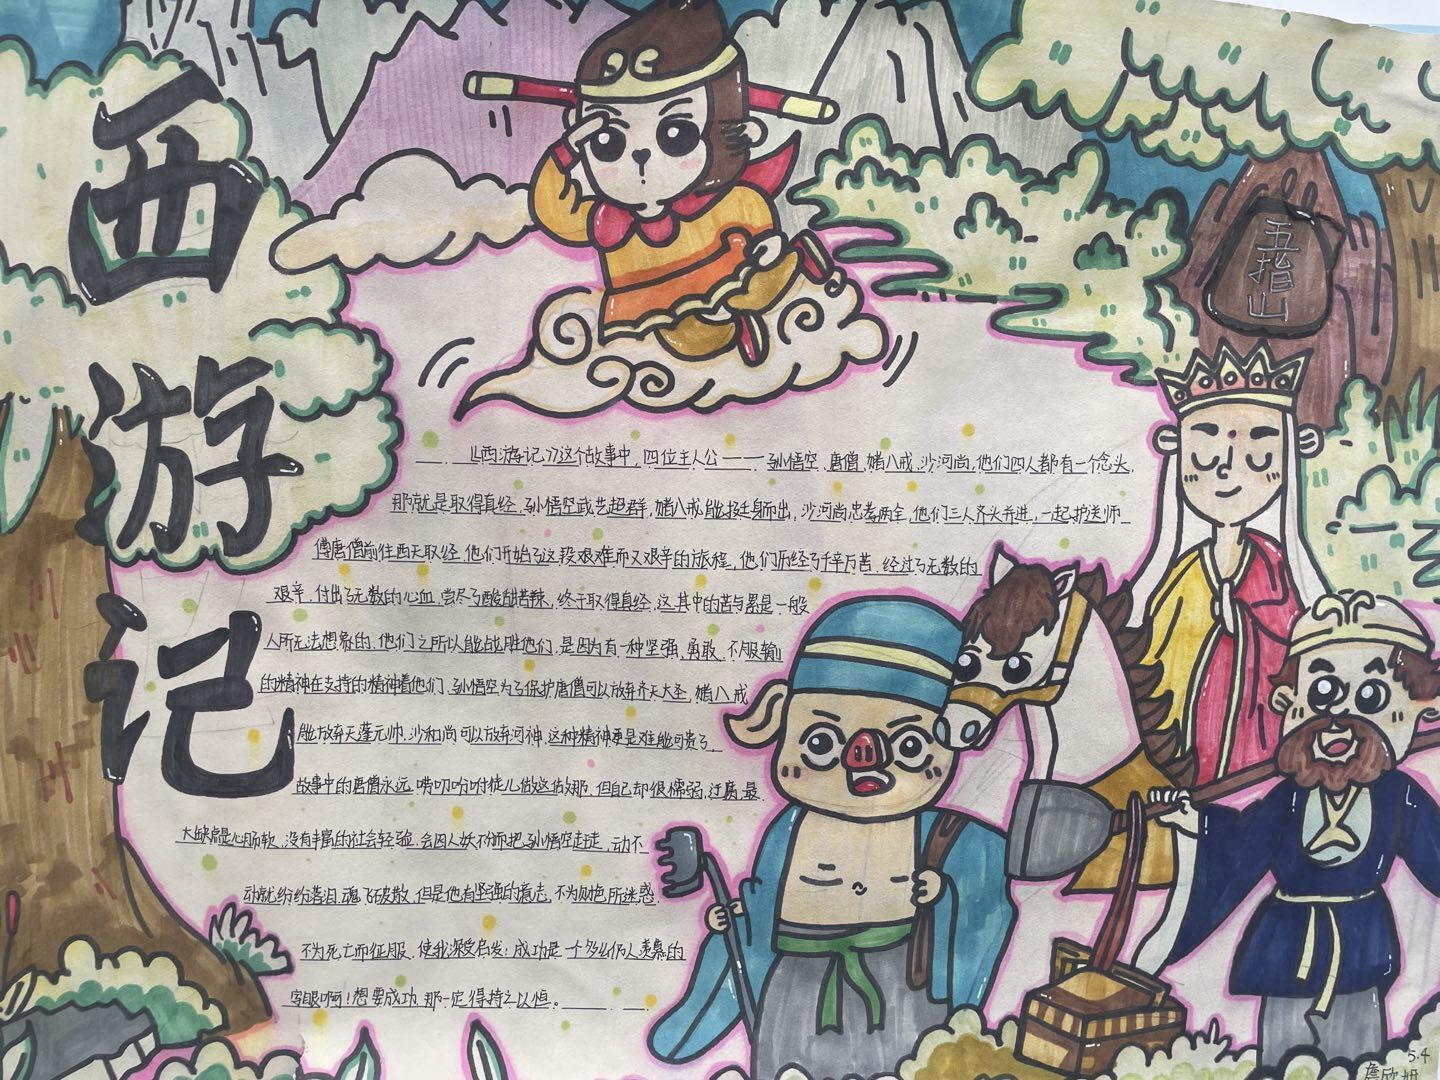 西游记
五指山
《西游记》这个故事中，四位主人公——孙悟空、唐僧、猪八戒、沙河尚，他们四人都有一个念头，
那就是取得真经，孙悟空武艺超群，猪八戒能挺身而出，沙河尚忠孝两全，他们三人齐头并进，一起护送师
傅唐僧前往西天取经，他们开始了这段艰难而又艰辛的旅程，他们历经了千辛万苦，经过了无数的
艰辛，付出了无数的心血，尝尽了酸甜苦辣，终于取得真经，这其中的苦与累是一般
人所无法想象的，他们之所以能战胜他们，是因为有一种坚强，勇敢，不服输
的精神在支持的精神着他们，孙悟空为了保护唐僧可以放弃齐天大圣，猪八戒
能放弃天蓬元帅，沙和尚可以放弃河神，这种精神更是难能可贵了，
故事中的唐僧永远唠叨吩咐徒儿做这做那，但自己却很懦弱，迂腐，最
大缺点是心肠软，没有丰富的社会经验，会因人妖不分而把孙悟空赶走，动不
动就纷纷落泪，魂飞破散，但是他有坚强的意志，不为财色所迷惑，
不为死亡而征服，使我深受启发：成功是一个多么何人羡慕的
字眼啊！想要成功，那一定得持之以恒。
5.4
詹欣妍